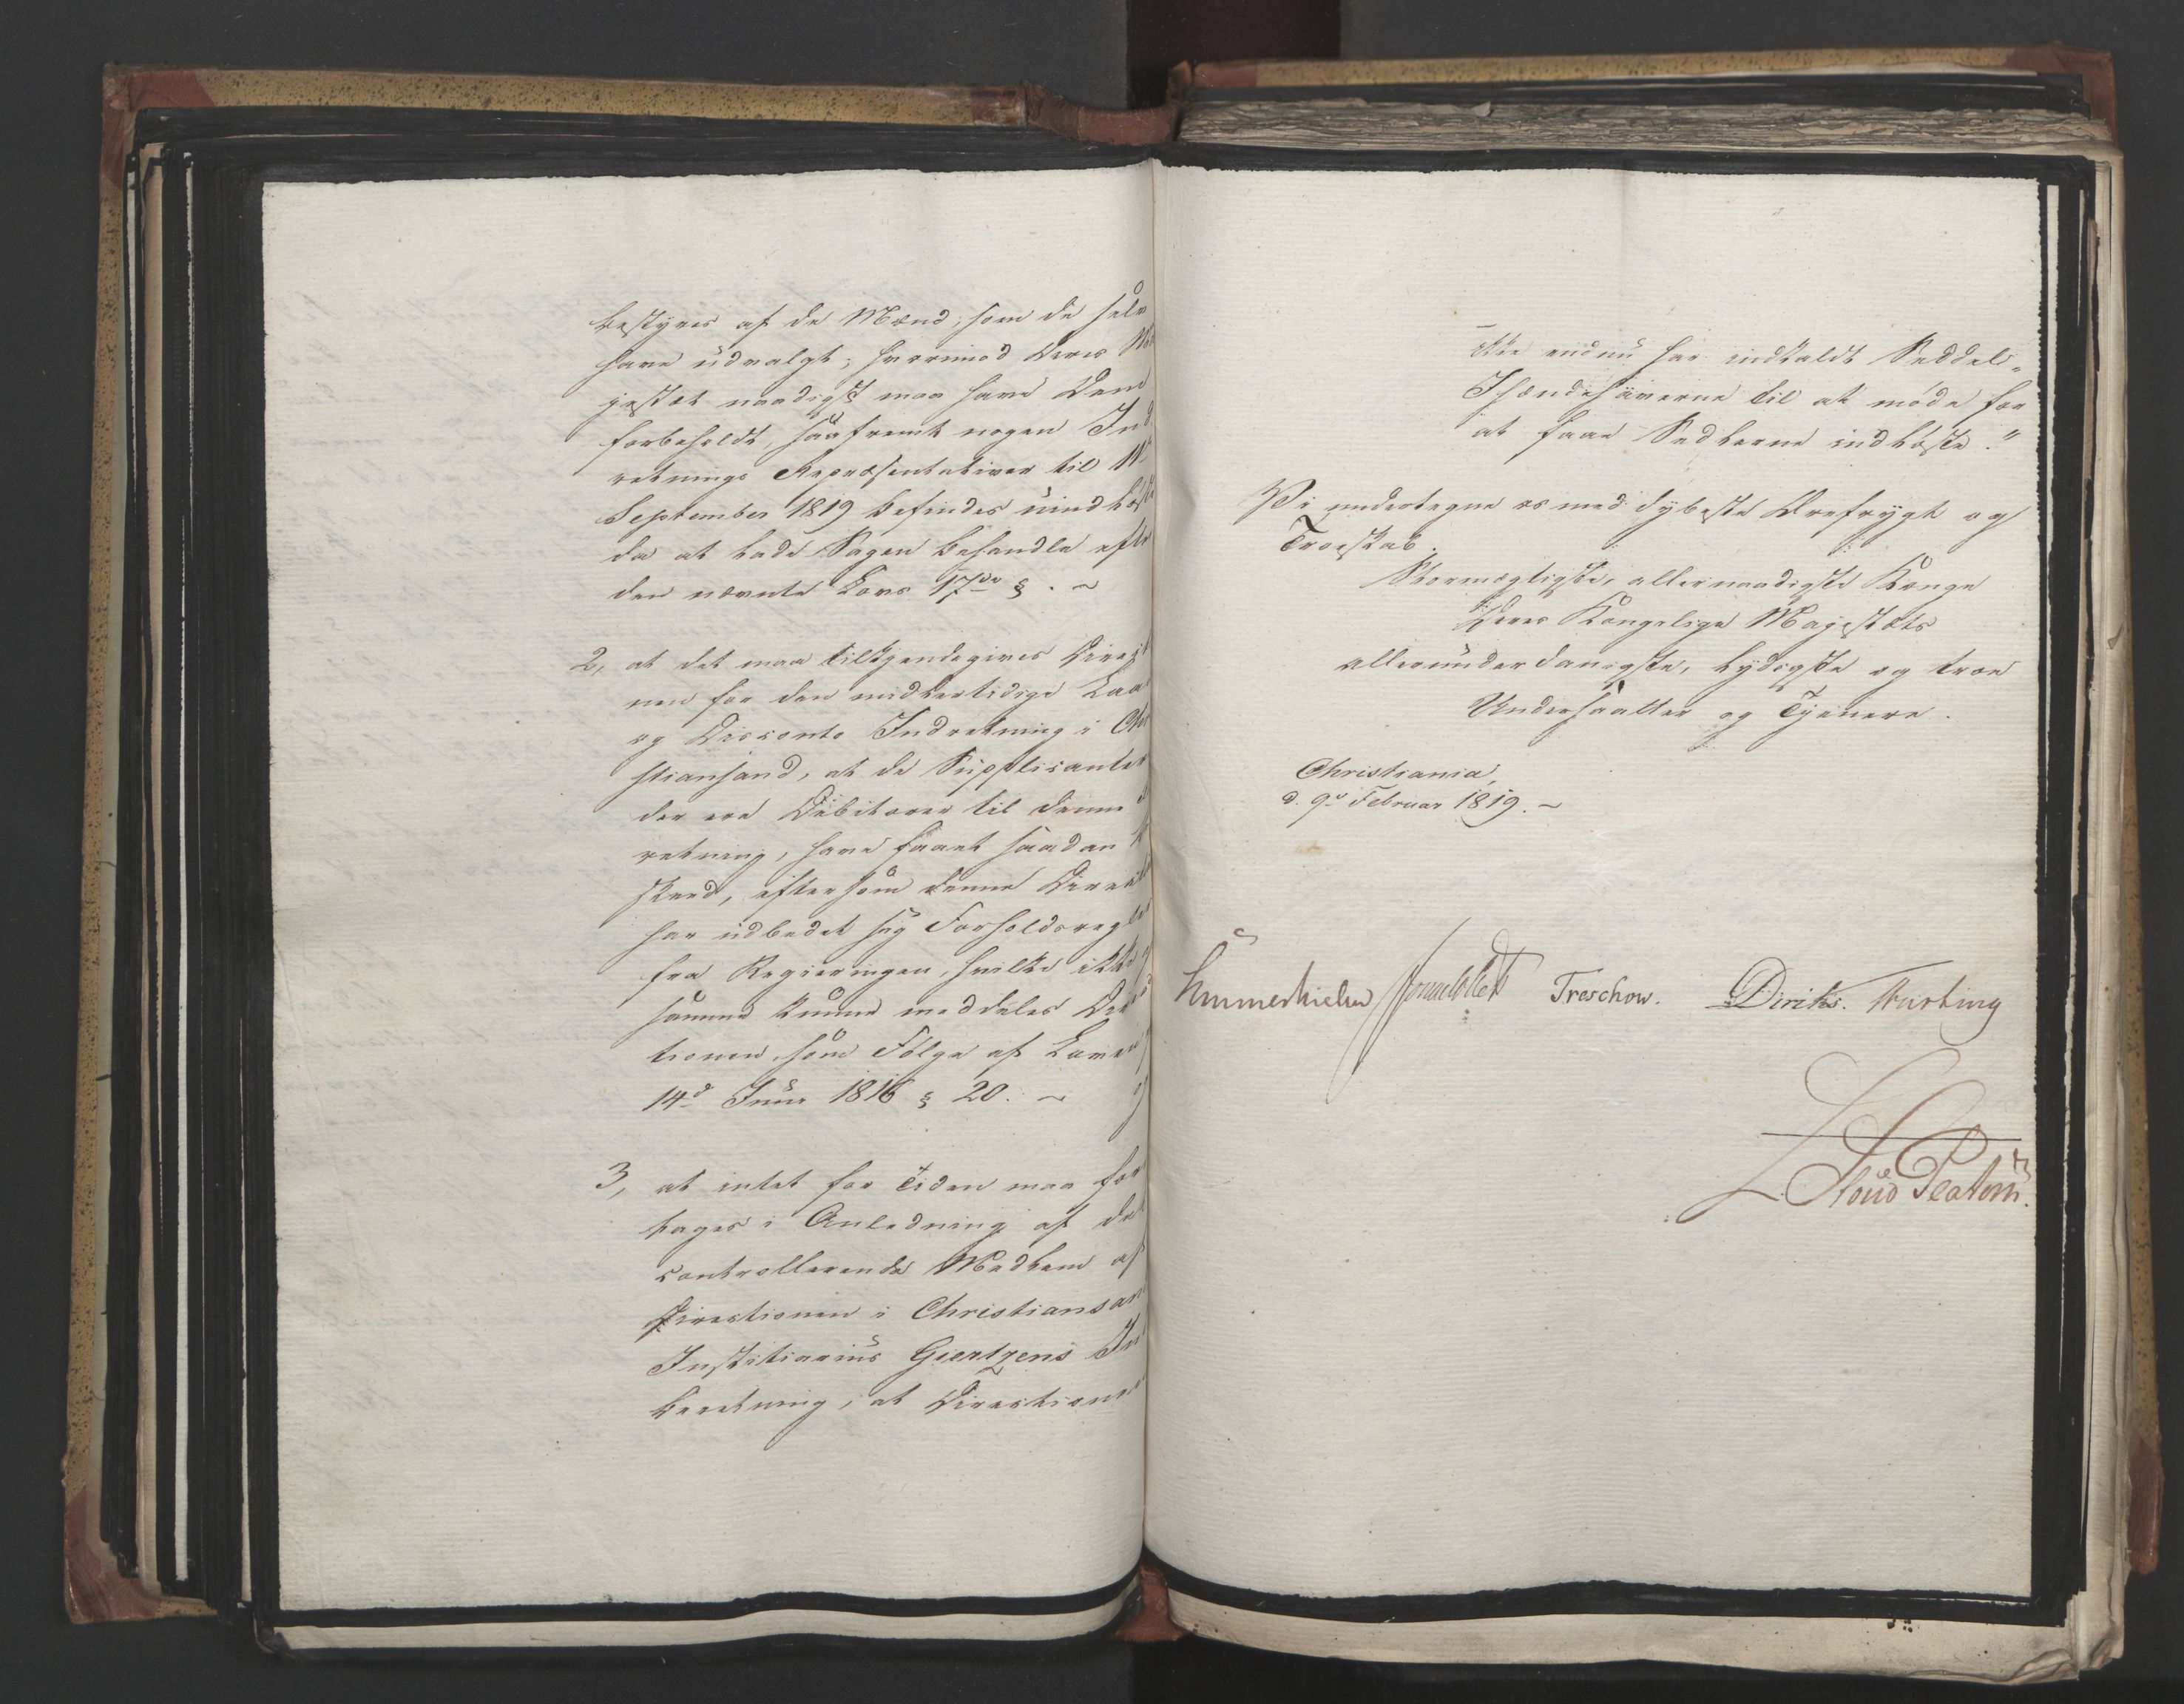 bestyres af de Mænd, som de selv
have udvalgt; hvorimod Deres Ma
jestæt naadigst maa have Dem
forbeholdt, saafremt nogen Ind
retnings Repræsentativer til 1ste
September 1819 befindes uindløst
da at lade Sagen behandle efter
den nævnte Lovs 17de §. ~
2, at det maa tilkjendegives Directi
nen for den midlertidige Laa
og Disconto Indretning i Chri
stiansand, at de Supplicanter
der ere Debitorer til denne
retning, have faaet saadan
skeed, eftersom denne Direct
har udbedet sig Forholdsregler
fra Regieringen, hvilke ikke
samme kunne meddeles Direc
tionen som Følge af Loven
14d Juni 1816 § 20. ~
3, at intet for Tiden maa fore
tages i Anledning af det
controllerende Medlem af
Directionen i Christiansand
Justitiarius Giertzens Ind
beretning, at Directionen
ikke endnu har indkaldt Seddel-
Ihændehaverne til at møde for
at faae Sedlerne indløste."
Vi undertegne os med dybeste Ærefrygt og
Troeskab.
Stormægtigste, allernaadigste Konge
Deres Kongelige Majestæts
allerunderdanigste, lydigste og troe
Undersaatter og Tjenere.
Christiania,
d. 9de Februar 1819. ~
Hummerhielm Sommerfeldt Treschow. Diriks. Fasting
Stoud Platou